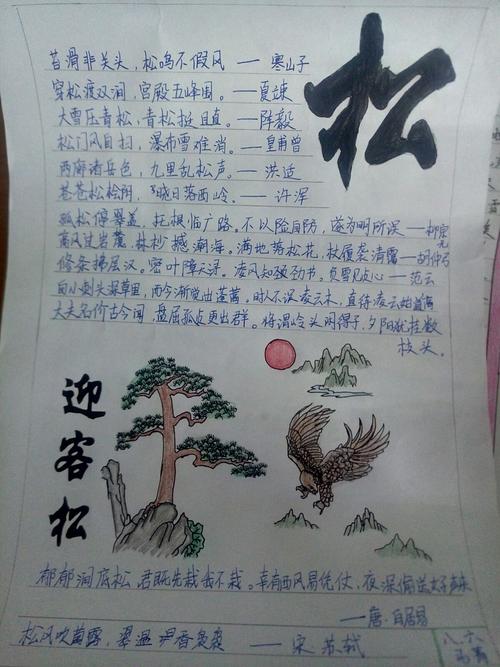 松
苔滑非关头，松鸣不假风 — 寒山子
穿松渡双涧，宫殿五峰围。—夏竦
大雪压青松，青松挺且直。—陈毅
松门风自扫，瀑布雪难消。—皇甫曾
两廊诸岳色，九里乱松声。— 洪适
苍苍松桧阴，晓日落西岭。— 许浑
孤松停翠盖，托根临广路。不以险自防，遂为明所误—柳宗元
高风过岩麓，林杪撼潮海。满地落松花，杖履袭清露—胡仲弓
修条拂层汉，密叶障天浔。凌风知劲节，负雪见贞心—范云
自小刺头深草里，而今渐觉出蓬蒿。时人不识凌云木，直待凌云始道高
大夫名价古今闻，盘屈孤贞更出群。将谓岭头闲得子，夕阳犹挂数
枝头。
迎客松
郁郁涧底松，君既先栽我不栽。幸有西风易凭仗，夜深偷送
—唐·白居易
松风吹菌露，翠湿香袅袅 — 宋 苏轼
八六